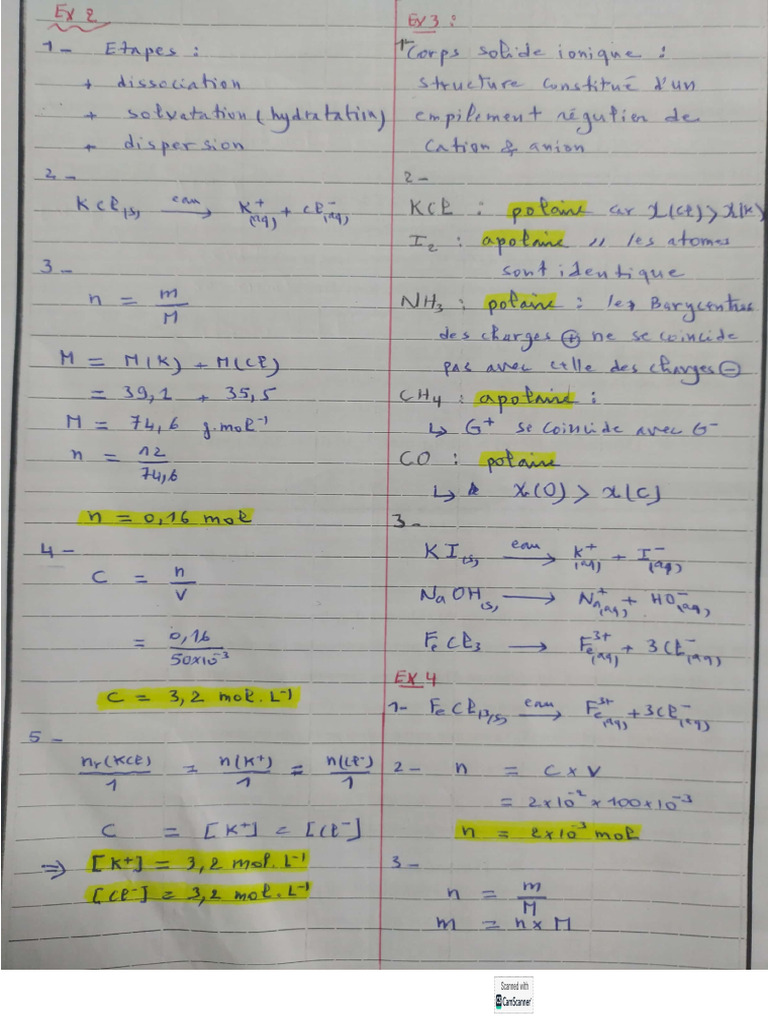 Ex 2
1- Etapes :
+ dissociation
+ solvatation (hydratation)
+ dispersion
2-
KCl(s) eau → K+(aq) + Cl-(aq)
3-
n = m/M
M = M(K) + M(Cl)
= 39,1 + 35,5
M = 74,6 g.mol-1
n = 12/74,6
n = 0,16 mol
4-
C = n/V
= 0,16/50x10-3
C = 3,2 mol.L-1
5-
nr(KCl)/1 = n(K+)/1 = n(Cl-)/1
C = [K+] = [Cl-]
⇒ [K+] = 3,2 mol.L-1
[Cl-] = 3,2 mol.L-1
Ex 3 :
1- Corps solide ionique :
structure constitué d'un
empilement régulier de
cation & anion
2-
KCl : polaire car x(Cl) > x(K)
I2 : apolaire // les atomes
sont identique
NH3 : polaire : les Barycentres
des charges ⊕ ne se coincide
pas avec celle des charges ⊖
CH4 : apolaire :
↳ G+ se coincide avec G-
CO : polaire
↳ x(O) > x(C)
3-
KI(s) eau → K+(aq) + I-(aq)
NaOH(s) → Na+(aq) + HO-(aq)
FeCl3 → Fe3+(aq) + 3Cl-(aq)
EX 4
1- FeCl3(s) eau → Fe3+(aq) + 3Cl-(aq)
2- n = C x V
= 2x10-2 x 100x10-3
n = 2x10-3 mol
3-
n = m/M
m = n x M
Scanned with
CamScanner